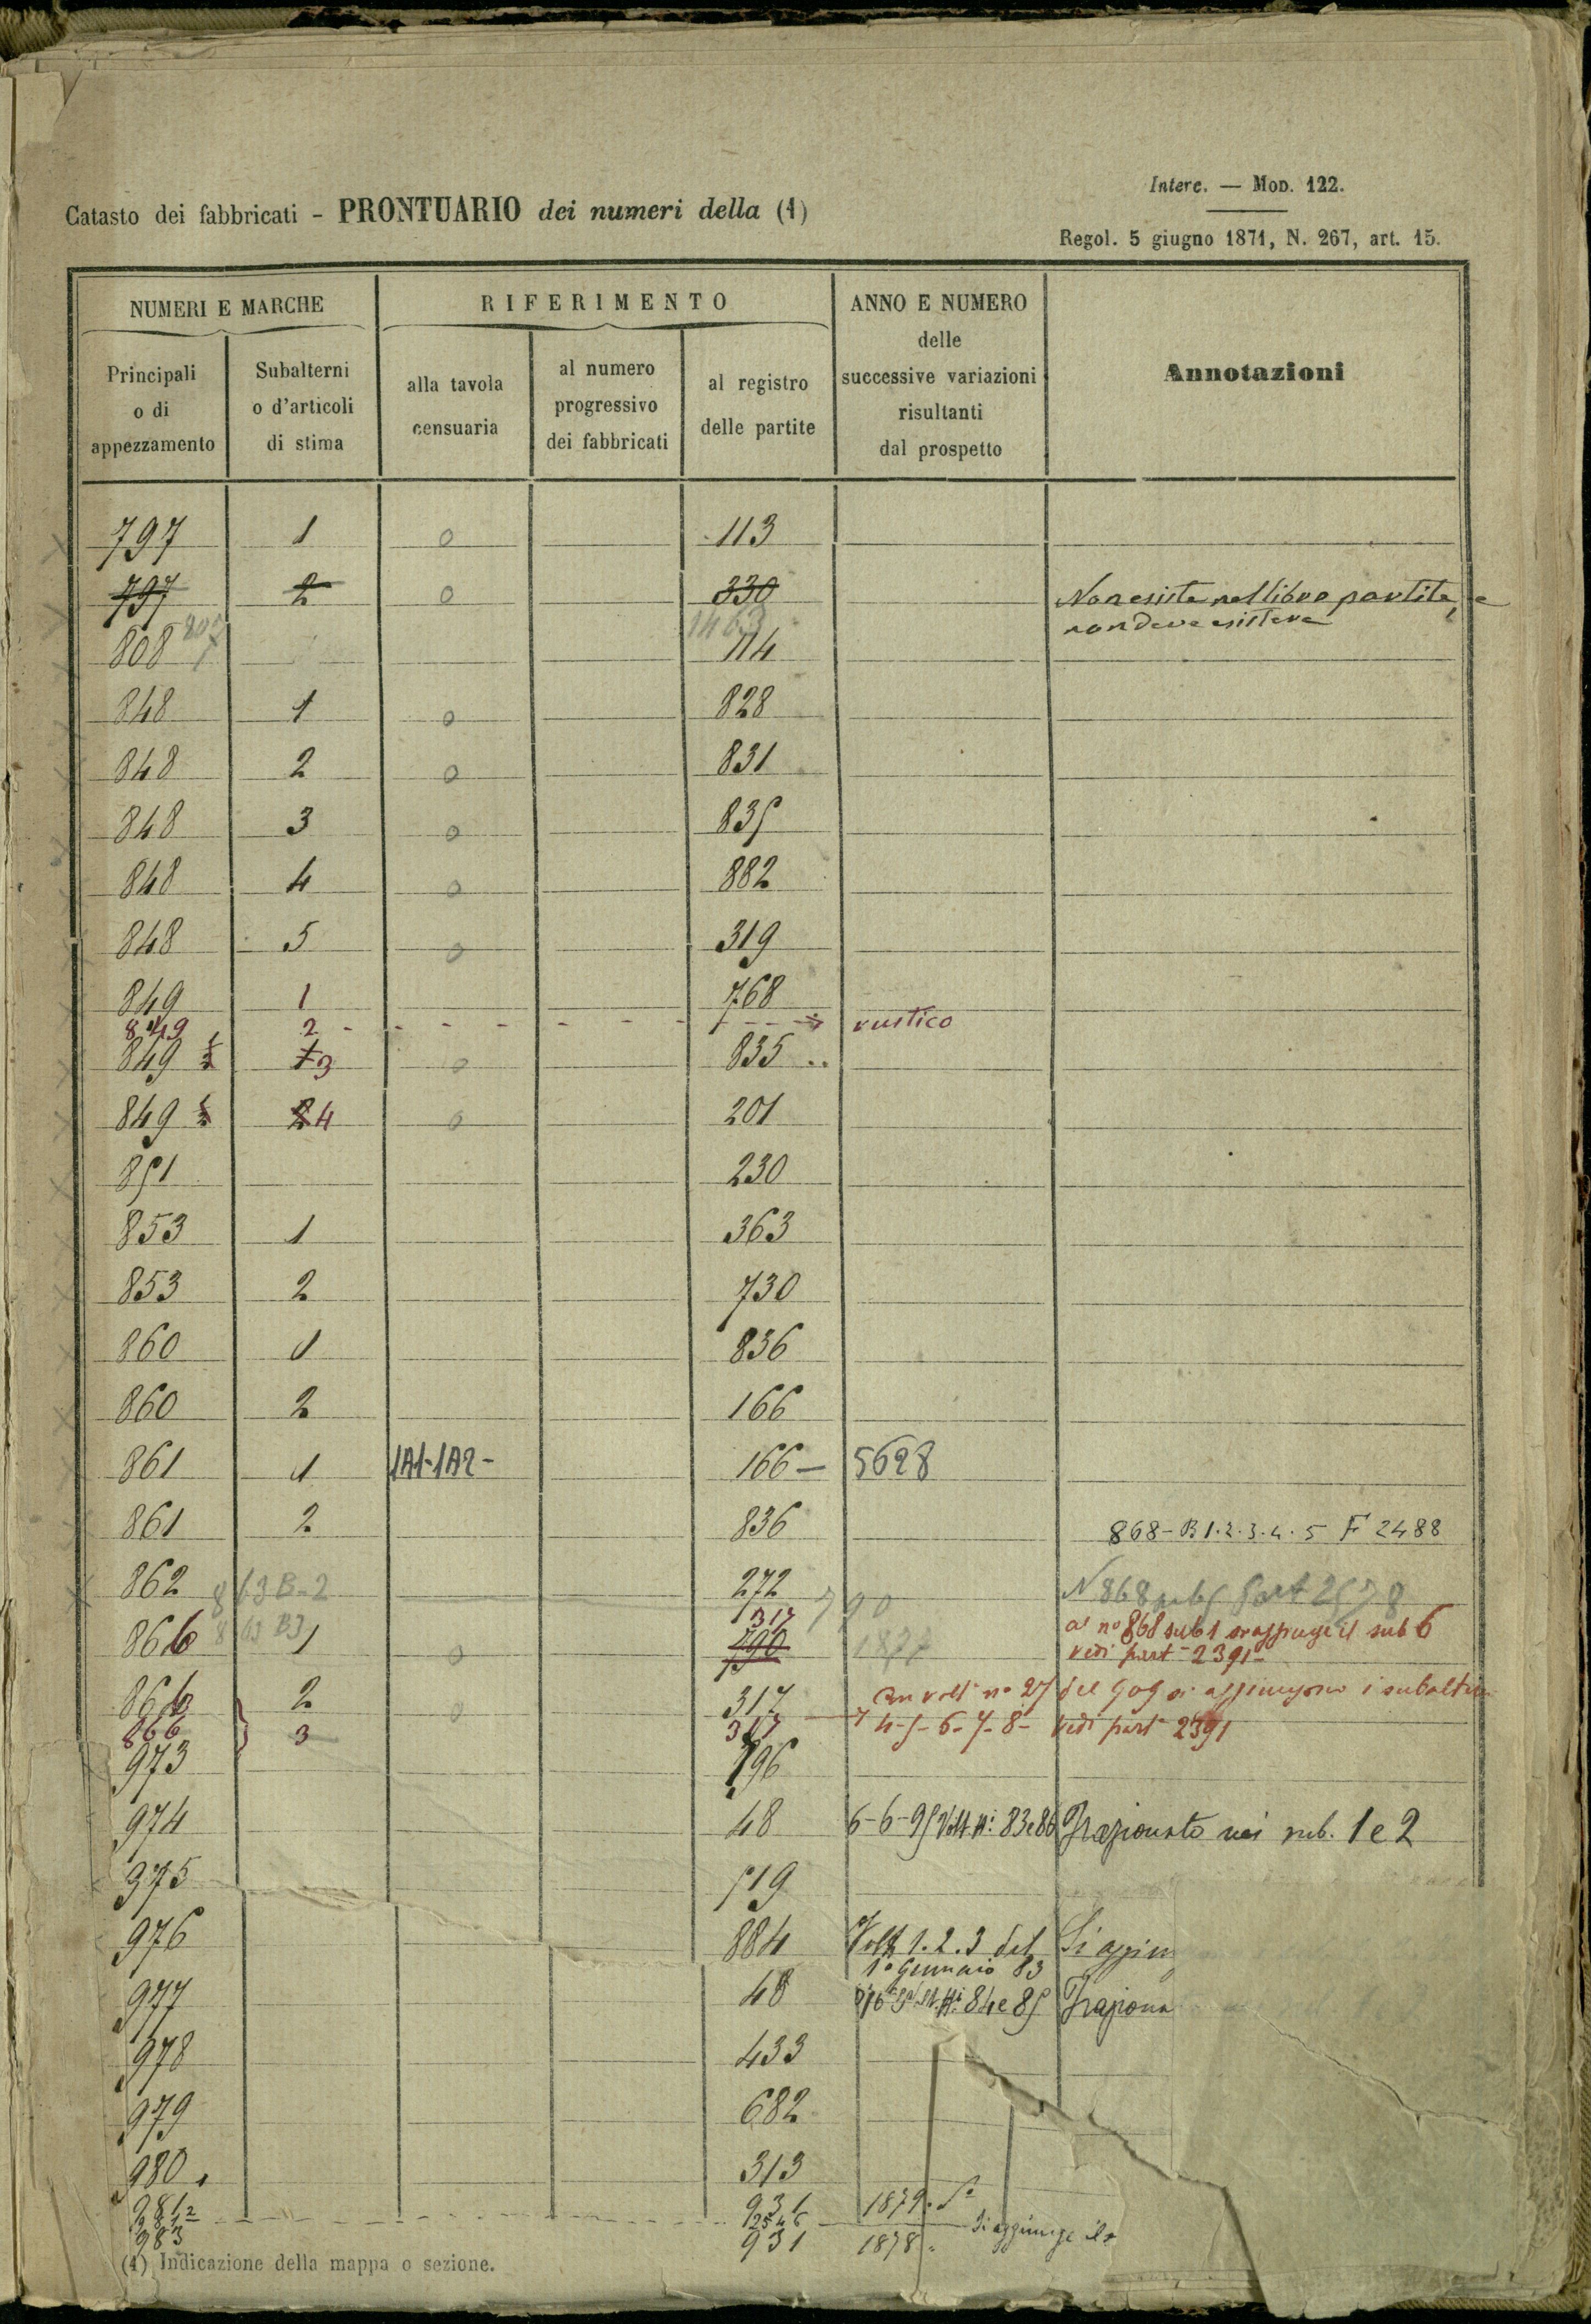 Interc. — Mod. 122.
Catasto dei fabbricati - PRONTUARIO dei numeri della (1)
Regol. 5 giugno 1871, N. 267, art. 15.
NUMERI E MARCHE
Principali o di appezzamento
Subalterni o d'articoli di stima
RIFERIMENTO
alla tavola censuaria
al numero progressivo dei fabbricati
al registro delle partite
ANNO E NUMERO delle successive variazioni risultanti dal prospetto
Annotazioni
797 1 0 113
797 2 0 330 Non esiste nel libro partite, e
non deve esistere
1463
808 114
848 1 0 828
848 2 0 831
848 3 0 835
848 4 0 882
848 5 0 319
849 1 768
849 2 - - - - - - - - rustico
849 1 3 0 835
849 2 4 0 201
851 230
853 1 363
853 2 730
860 1 836
860 2 166
861 1 1A1-1A2- 166 — 5628
861 2 836 868-B1.2.3.4.5 F 2488
862 63 B-2 272 N 868
1317
866 63 B3 1 0 790 1877 al no 868 sub 1 si aggiunge il sub 6
vedi part 2391-
866 2 0 317 volt no 27 del 909 si aggiungono i
866 3 317 4-5-6-7-8- vedi part 2391
973 796
974 48 6-6-95 Volt Ni 83e86 Frazionato nei sub. 1 e 2
975 519
976 884 Volt 1.2.3 del Si aggiun
1o Gennaio 83
977 48 84e85 Fraziona
978 433
979 682
980 313
981 931 1879.
2546 Si aggiunge il
983 931 1878.
(1) Indicazione della mappa o sezione.